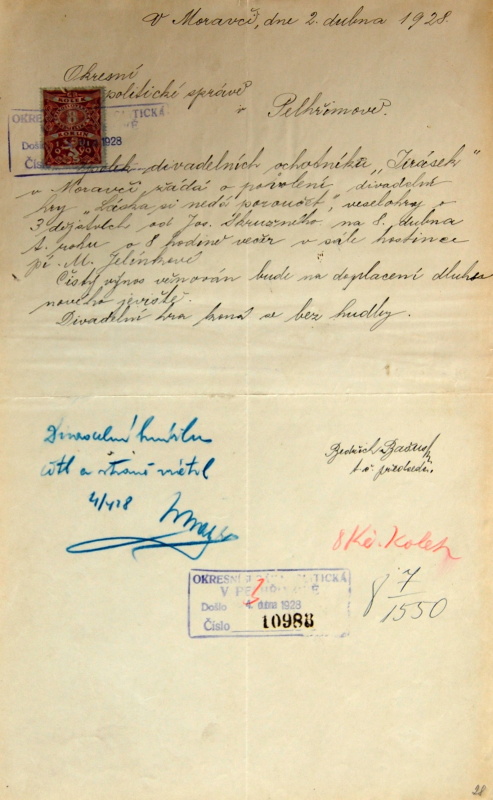 V Moravči, dne 2. dubna 1928.
Okresní
politické správě
v
Pelhřimově.
KOLEK
8
Došlo 1928
Číslo
Spolek divadelních ochotníků "Jirásek"
v Moravči žádá o povolení divadelní
hry "Láska si nedá poroučet", veselohry o
3 dějstvích od Jos. Skružného na 8. dubna
t. roku o 8 hodině večer v sále hostince
pí. M. Jelínkové
Čistý výnos věnován bude na doplacení dluhu
nového jeviště.
Divadelní hra koná se bez hudby.
4/4 28
Bedřich
t. č. předseda.
8 Kč. Kolek
OKRESNÍ SPRÁVA POLITICKÁ
V PELHŘIMOVĚ
Došlo 4. dubna 1928
Číslo 10988
8 7/1550
28